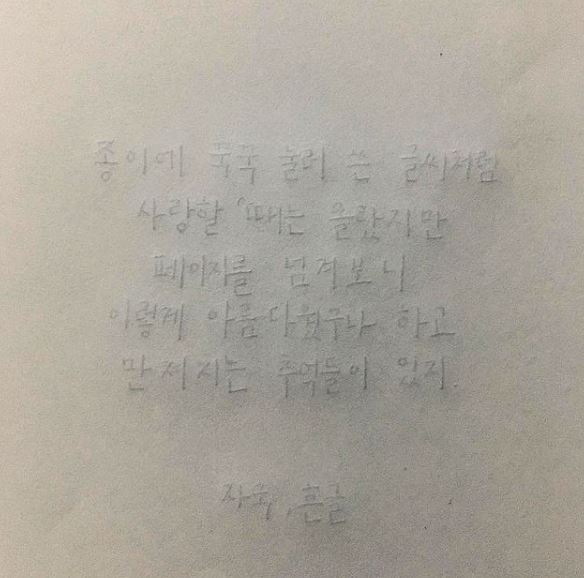 종이에 꾹꾹 눌러 쓴 글씨처럼
사랑할 때는 몰랐지만
페이지를 넘겨보니
이렇게 아름다웠구나 하고
만져지는 추억들이 있지.
자국, 흔글